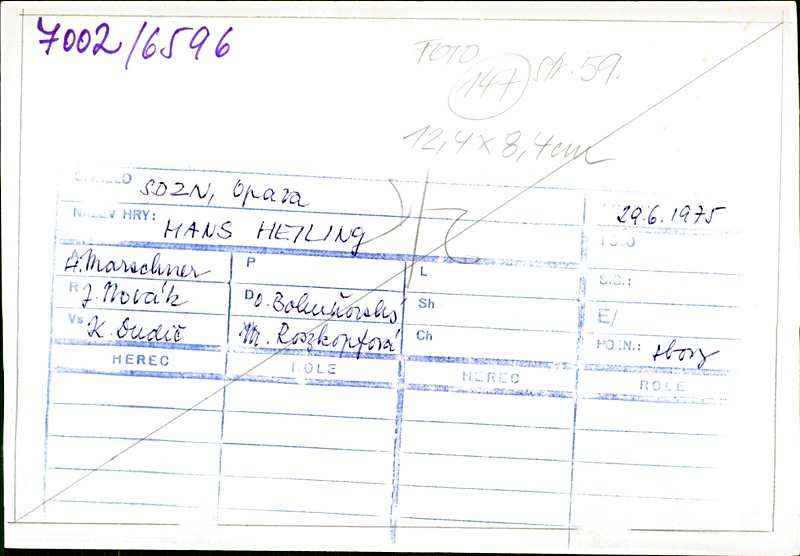 7002/6596
FOTO 147 str. 59.
12,4 x 8,4 cm
DIVADLO SDZN, Opava
29.6.1975
NÁZEV HRY: HANS HEILING
FOTO
A H. Marschner P L S.G.:
R J. Novák D O. Bohuňovský Sh E/
Vs K. Dudič M. Roszkopfová Ch POZN.: sbory
HEREC ROLE HEREC ROLE